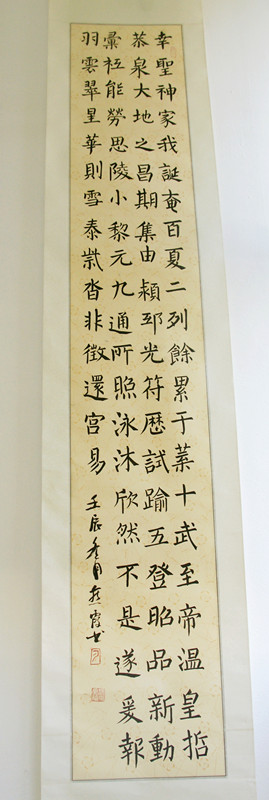 幸聖神家我誕奄百夏二列餘累于葉十武至帝溫皇哲
恭泉大地之昌期集由潁邳光符歷試踰五登昭品新動
彙祇能勞思陵小黎元九通所照泳沐欣然不是遂爰報
羽雲翠星華則雪泰祡沓非徵還宮易
壬辰冬月書